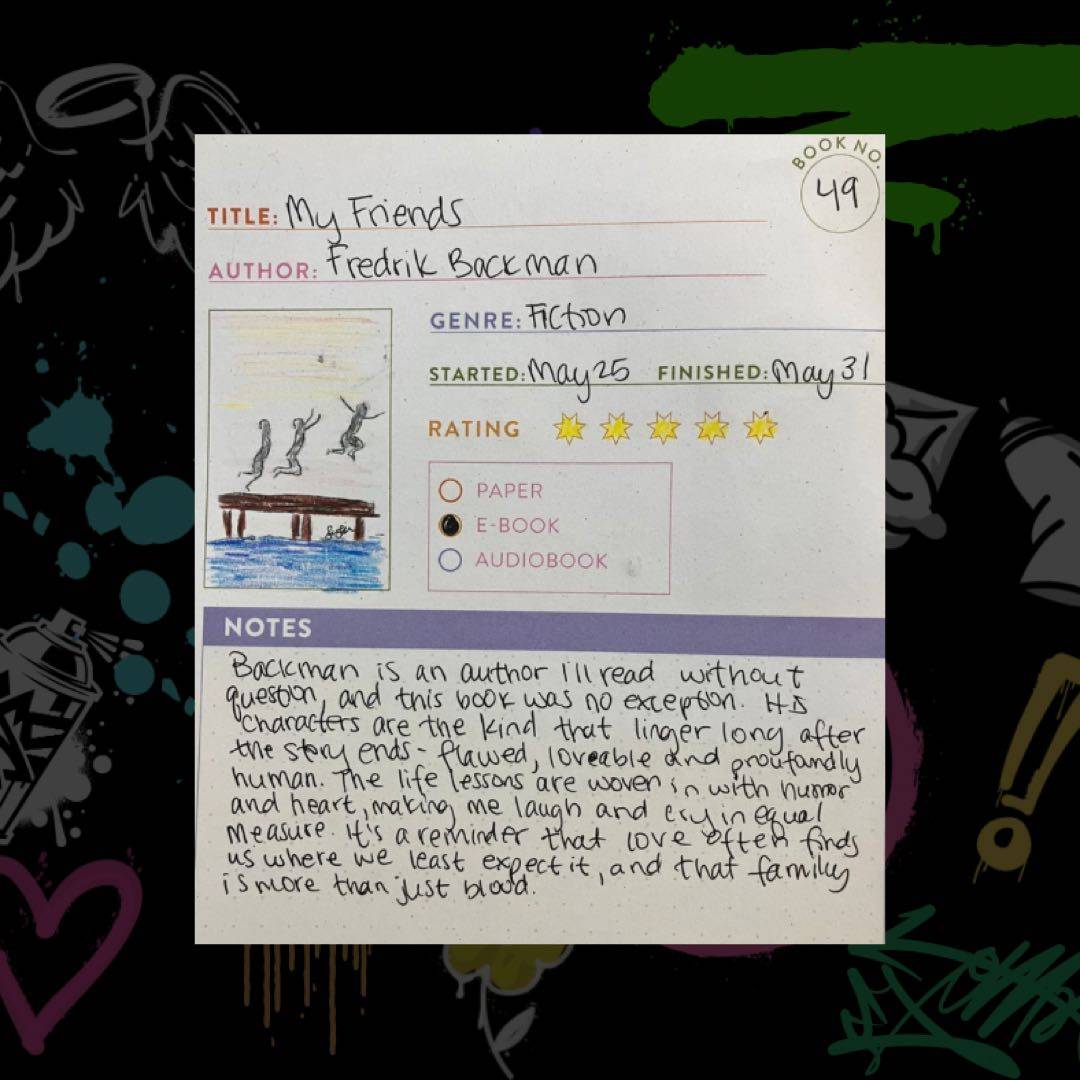 BOOK NO.
49
TITLE: My Friends
AUTHOR: Fredrik Backman
GENRE: Fiction
STARTED: May 25 FINISHED: May 31
RATING
PAPER
E-BOOK
AUDIOBOOK
NOTES
Backman is an author I'll read without
question, and this book was no exception. His
characters are the kind that linger long after
the story ends - flawed, loveable and proufandly
human. The life lessons are woven in with humor
and heart, making me laugh and cry in equal
measure. It's a reminder that love often finds
us where we least expect it, and that family
is more than just blood.